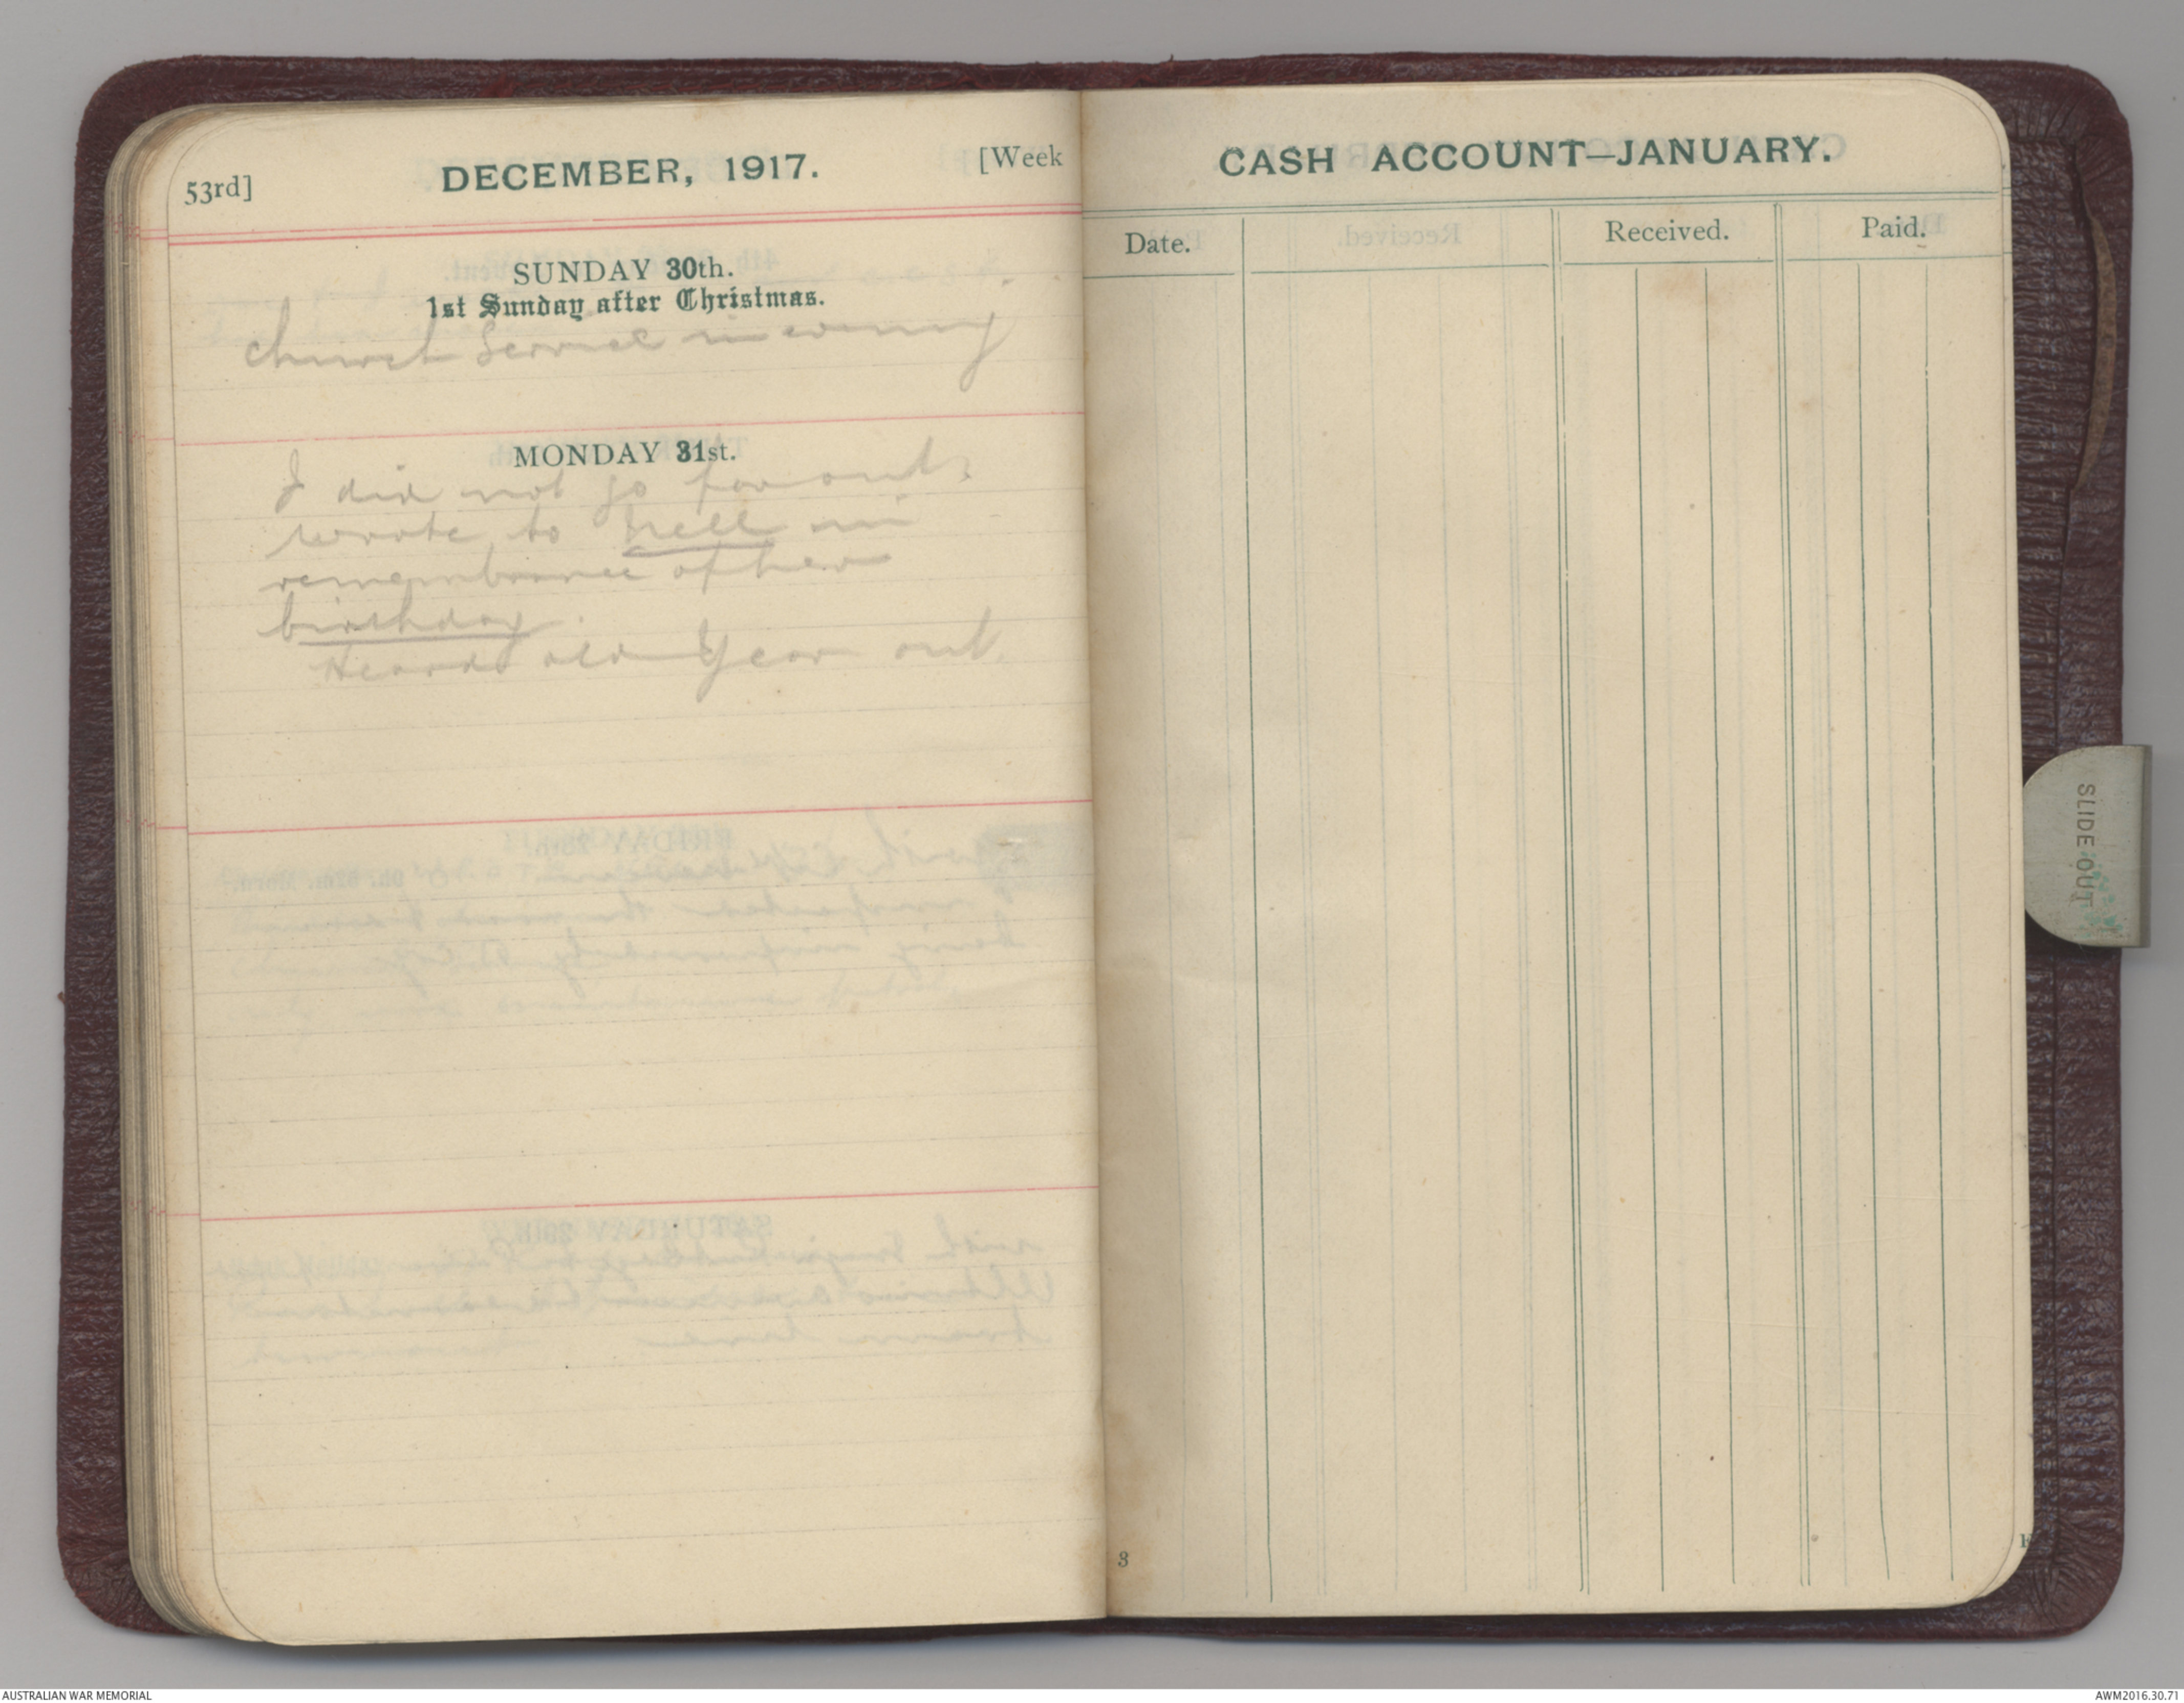 53rd] DECEMBER, 1917. [Week
SUNDAY 30th.
1st Sunday after Christmas.
Church Service in evening
MONDAY 31st.
I did not go far out.
wrote to Nell in
remembrance of her
birthday.
Heard old Year out.
CASH ACCOUNT—JANUARY.
Date. Received. Paid.
3
SLIDE OUT
AUSTRALIAN WAR MEMORIAL
AWM2016.30.71